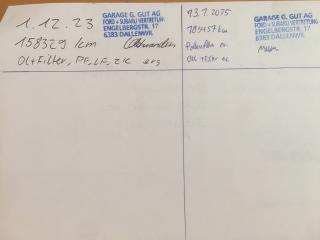 1.12.23
GARAGE G. GUT AG
FORD + SUBARU VERTRETUNG
ENGELBERGSTR. 17
6383 DALLENWIL
158329 km
Oel+Filter, PF, LF, ZK erg
13.1.2025
183457 km
GARAGE G. GUT AG
FORD + SUBARU VERTRETUNG
ENGELBERGSTR. 17
6383 DALLENWIL
Pollenfilter en
Oel + Filter ok